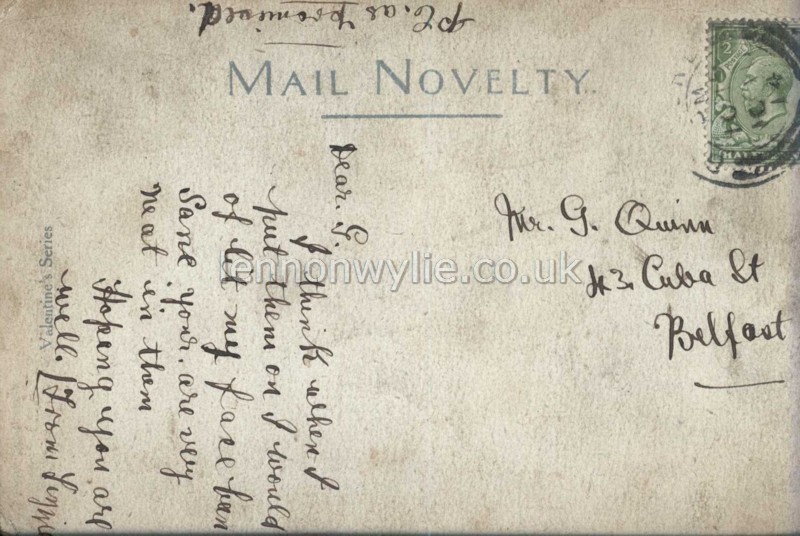 P.C. as promised.
MAIL NOVELTY.
Valentine's Series
Dear. G.
I think when I
put them on I would
of let my face ban
Sane your are very
neat in them
Hoping you are
well. From Lizzie
Mr. G. Quinn
43 Cuba St
Belfast
lennonwylie.co.uk